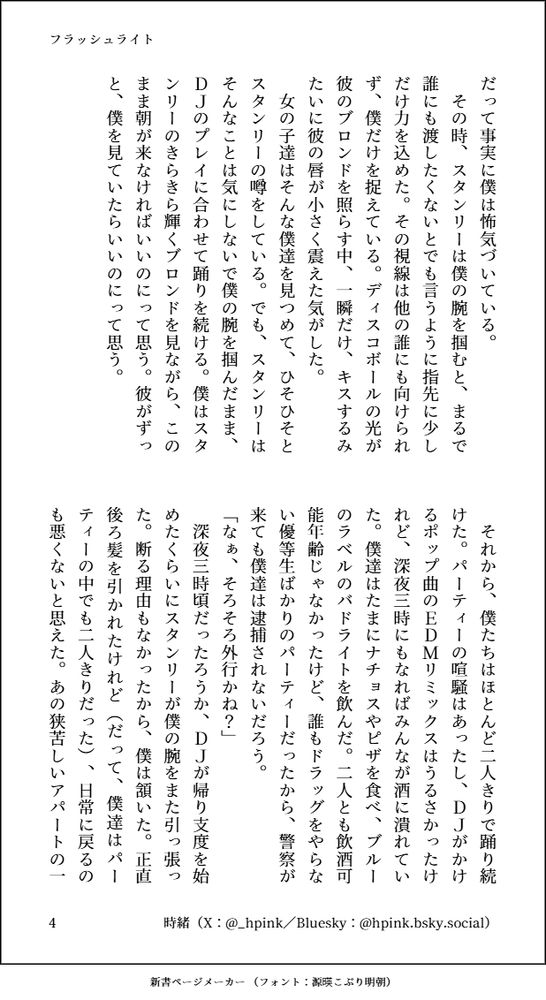 フラッシュライト
だって事実に僕は怖気づいている。
　その時、スタンリーは僕の腕を掴むと、まるで
誰にも渡したくないとでも言うように指先に少し
だけ力を込めた。その視線は他の誰にも向けられ
ず、僕だけを捉えている。ディスコボールの光が
彼のブロンドを照らす中、一瞬だけ、キスするみ
たいに彼の唇が小さく震えた気がした。
　女の子達はそんな僕達を見つめて、ひそひそと
スタンリーの噂をしている。でも、スタンリーは
そんなことは気にしないで僕の腕を掴んだまま、
ＤＪのプレイに合わせて踊りを続ける。僕はスタ
ンリーのきらきら輝くブロンドを見ながら、この
まま朝が来なければいいのにって思う。彼がずっ
と、僕を見ていたらいいのにって思う。
　それから、僕たちはほとんど二人きりで踊り続
けた。パーティーの喧騒はあったし、ＤＪがかけ
るポップ曲のＥＤＭリミックスはうるさかったけ
れど、深夜三時にもなればみんなが酒に潰れてい
た。僕達はたまにナチョスやピザを食べ、ブルー
のラベルのバドライトを飲んだ。二人とも飲酒可
能年齢じゃなかったけど、誰もドラッグをやらな
い優等生ばかりのパーティーだったから、警察が
来ても僕達は逮捕されないだろう。
「なぁ、そろそろ外行かね？」
　深夜三時頃だったろうか、ＤＪが帰り支度を始
めたくらいにスタンリーが僕の腕をまた引っ張っ
た。断る理由もなかったから、僕は頷いた。正直
後ろ髪を引かれたけれど（だって、僕達はパー
ティーの中でも二人きりだった）、日常に戻るの
も悪くないと思えた。あの狭苦しいアパートの一
4
時緒（X：@_hpink／Bluesky：@hpink.bsky.social）
新書ページメーカー（フォント：源暎こぶり明朝）